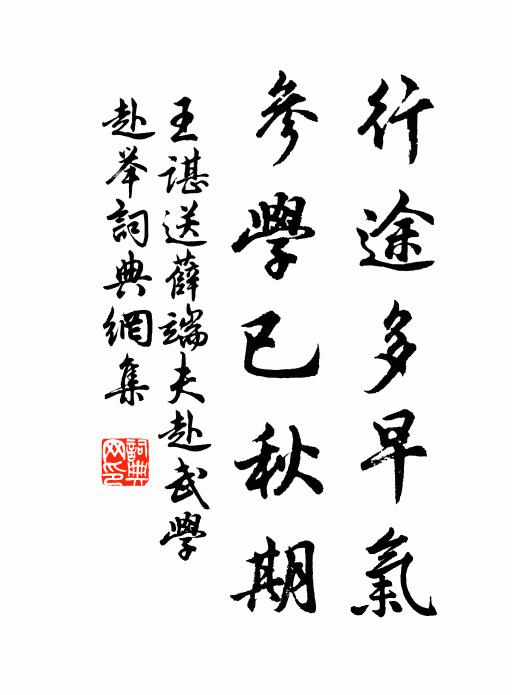 行途多早氣
參學已秋期
王諶送薛端夫赴武學
赴举詞典網集
詞典網印